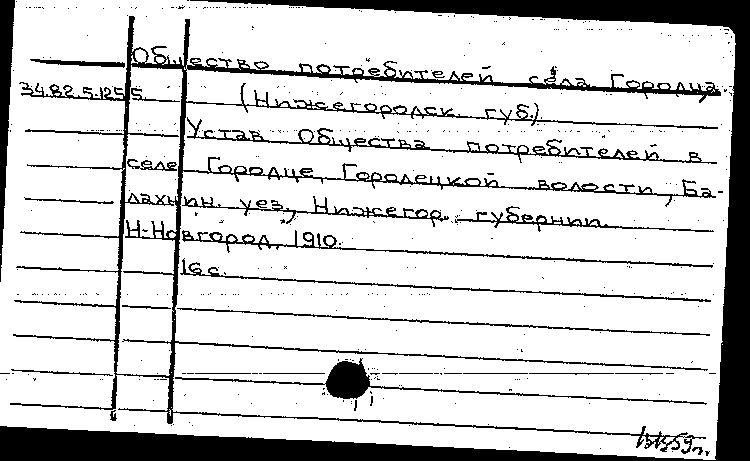 Общество потребителей села Городца
34.82.5.125
(Нижегородск. губ.)
Устав Общества потребителей в
селе Городце, Городецкой волости, Ба-
лахнин. уез., Нижегор. губернии.
Н-Новгород, 1910.
16 с.